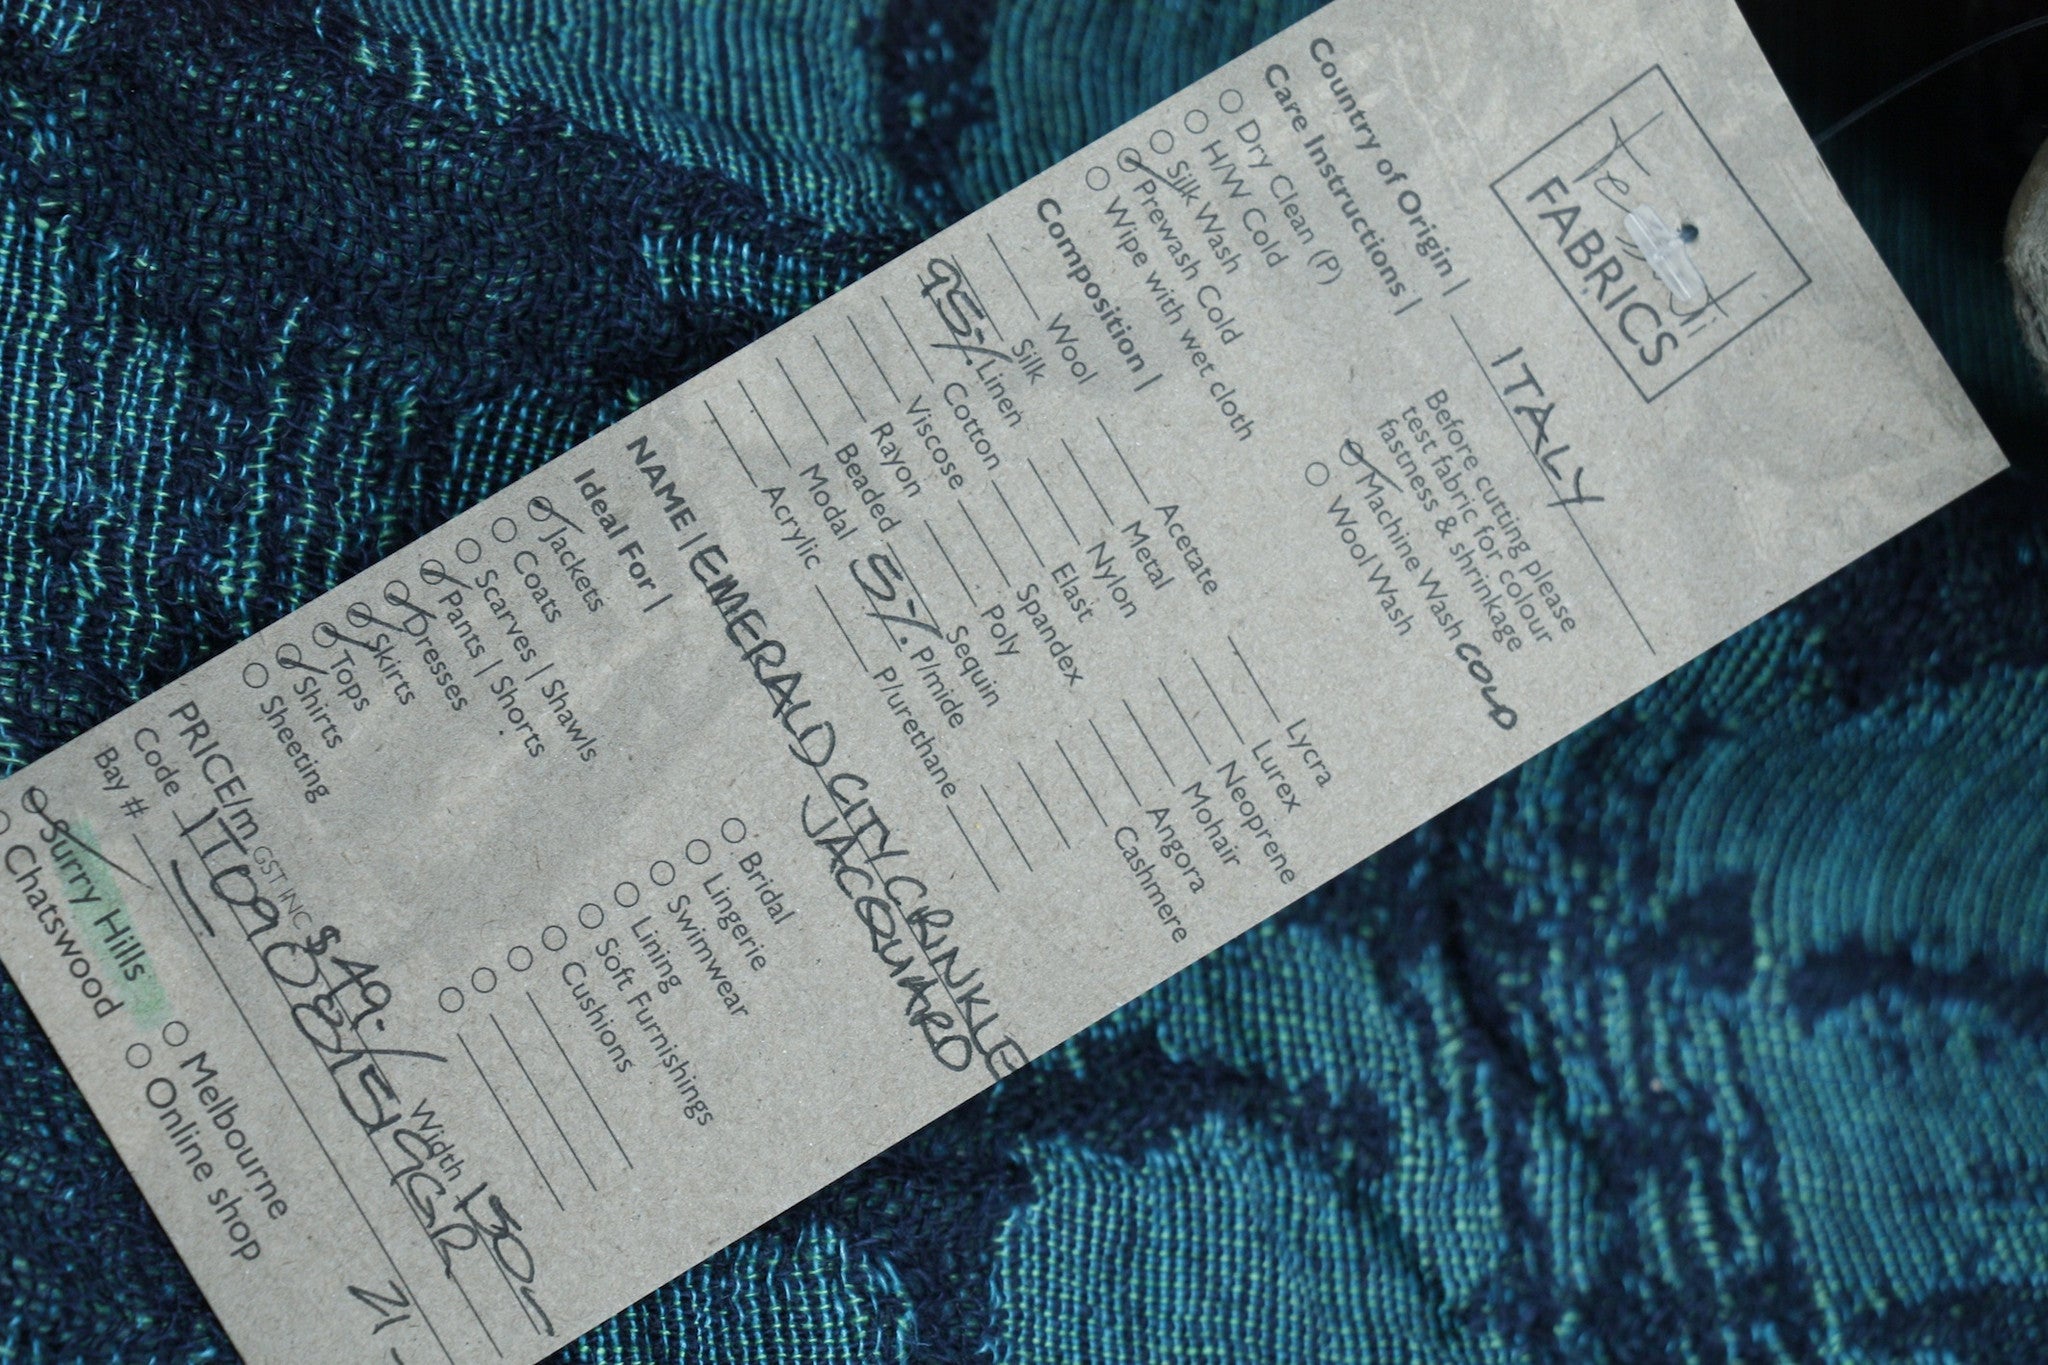 Tessuti
FABRICS
Country of Origin | ITALY
Care Instructions |
Dry Clean (P)
H/W Cold
Silk Wash
Prewash Cold
Wipe with wet cloth
Before cutting please
test fabric for colour
fastness & shrinkage
Machine Wash COLD
Wool Wash
Composition |
Wool
Silk
95% Linen
Cotton
Viscose
Rayon
Beaded
Modal
Acrylic
Acetate
Metal
Nylon
Elast
Spandex
Poly
Sequin
5% P/mide
P/urethane
Lycra
Lurex
Neoprene
Mohair
Angora
Cashmere
NAME | EMERALD CITY CRINKLE
JACQUARD
Ideal For |
Jackets
Coats
Scarves | Shawls
Pants | Shorts
Dresses
Skirts
Tops
Shirts
Sheeting
Bridal
Lingerie
Swimwear
Lining
Soft Furnishings
Cushions
PRICE/m GST INC $49./ Width 130
Code 1T090081519GR
Bay # 21
Surry Hills
Chatswood
Melbourne
Online shop